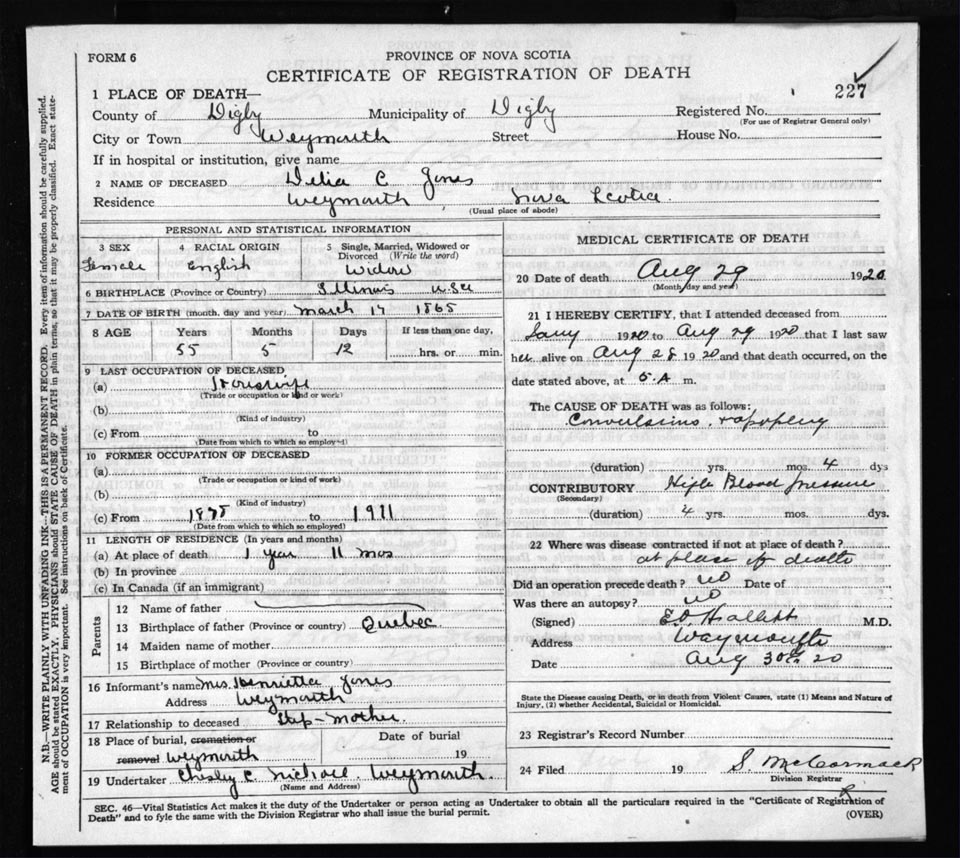 FORM 6
PROVINCE OF NOVA SCOTIA
CERTIFICATE OF REGISTRATION OF DEATH
227
1 PLACE OF DEATH—
County of Digby Municipality of Digby Registered No.
(For use of Registrar General only)
City or Town Weymouth Street House No.
If in hospital or institution, give name
2 NAME OF DECEASED Delia C Jones
Residence Weymouth Nova Scotia.
(Usual place of abode)
PERSONAL AND STATISTICAL INFORMATION
3 SEX 4 RACIAL ORIGIN 5 Single, Married, Widowed or Divorced (Write the word)
Female English Widow
6 BIRTHPLACE (Province or Country) Illinois USA
7 DATE OF BIRTH (month, day and year) March 17 1865
8 AGE Years Months Days If less than one day,
55 5 12 hrs. or min.
9 LAST OCCUPATION OF DECEASED
(a) Housewife
(Trade or occupation or kind or work)
(b)
(Kind of industry)
(c) From to
(Date from which to which so employed)
10 FORMER OCCUPATION OF DECEASED
(a)
(Trade or occupation or kind of work)
(b)
(Kind of industry)
(c) From to 1911
(Date from which to which so employed)
11 LENGTH OF RESIDENCE (In years and months)
(a) At place of death 1 year 11 mos
(b) In province
(c) In Canada (if an immigrant)
Parents
12 Name of father
13 Birthplace of father (Province or country) Quebec.
14 Maiden name of mother
15 Birthplace of mother (Province or country)
16 Informant's name Mrs Henrietta Jones
Address Weymouth
17 Relationship to deceased Step-Mother.
18 Place of burial, cremation or Date of burial
removal Weymouth 19
19 Undertaker Weymouth.
(Name and Address)
MEDICAL CERTIFICATE OF DEATH
20 Date of death Aug 29 1920
(Month, day and year)
21 I HEREBY CERTIFY, that I attended deceased from
1920 to Aug 29 1920 that I last saw
her alive on Aug 28 1920 and that death occurred, on the
date stated above, at 5.A m.
The CAUSE OF DEATH was as follows:
Convulsions + apoplexy
(duration) yrs. mos. 4 dys
CONTRIBUTORY High Blood Pressure
(Secondary)
(duration) yrs. mos. dys.
22 Where was disease contracted if not at place of death?
at place of death
Did an operation precede death? no Date of
Was there an autopsy? no
(Signed) Hallett M.D.
Address Waymouth
Date Aug 30th 20
State the Disease causing Death, or in death from Violent Causes, state (1) Means and Nature of
Injury, (2) whether Accidental, Suicidal or Homicidal.
23 Registrar's Record Number
24 Filed 19 S. McCormack
Division Registrar
SEC. 46—Vital Statistics Act makes it the duty of the Undertaker or person acting as Undertaker to obtain all the particulars required in the "Certificate of Registration of
Death" and to fyle the same with the Division Registrar who shall issue the burial permit.
(OVER)
N.B.—WRITE PLAINLY WITH UNFADING INK—THIS IS A PERMANENT RECORD. Every item of information should be carefully supplied.
AGE should be stated EXACTLY. PHYSICIANS should STATE CAUSE OF DEATH in plain terms, so that it may be properly classified. Exact state-
ment of OCCUPATION is very important. See instructions on back of Certificate.